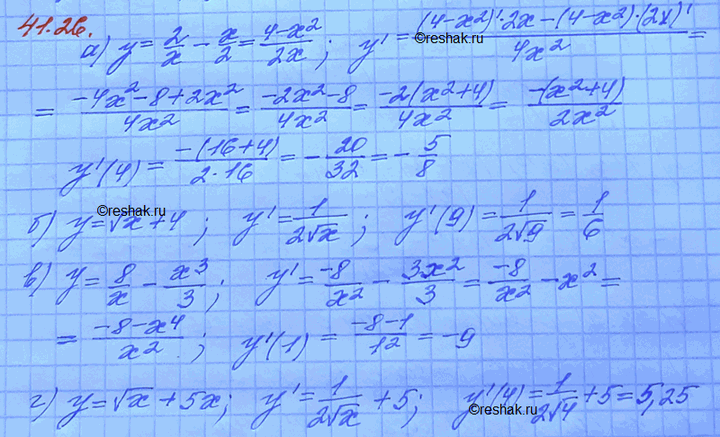 41.26.
а) y = 2/x - x/2 = (4-x²)/2x ; y' = ((4-x²)'·2x-(4-x²)·(2x)')/4x² =
©reshak.ru
= (-4x²-8+2x²)/4x² = (-2x²-8)/4x² = -2(x²+4)/4x² = -(x²+4)/2x²
y'(4) = -(16+4)/2·16 = -20/32 = -5/8
©reshak.ru
б) y=√x+4 ; y' = 1/2√x ; y'(9) = 1/2√9 = 1/6
в) y = 8/x - x³/3 ; y' = -8/x² - 3x²/3 = -8/x² - x² =
= (-8-x⁴)/x² ; y'(1) = (-8-1)/1² = -9
г) y=√x+5x ; y' = 1/2√x + 5 ; y'(4) = 1/2√4 + 5 = 5,25
©reshak.ru